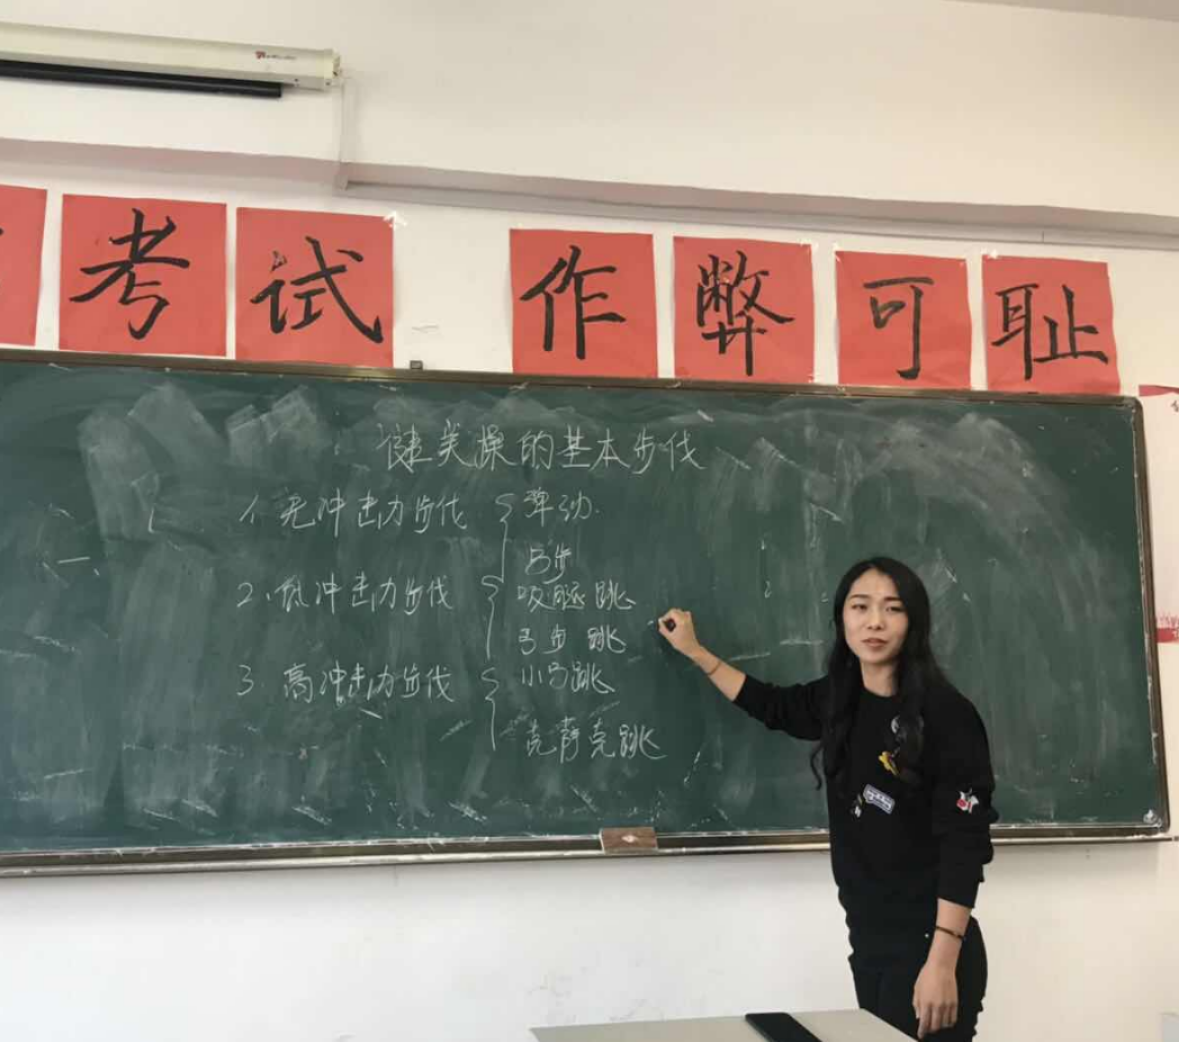 考试 作弊可耻
健美操的基本步伐
1、无冲击力步伐 弹动
弓步
2、低冲击力步伐 吸腿跳
弓步跳
3 高冲击力步伐 小马跳
克靜克跳